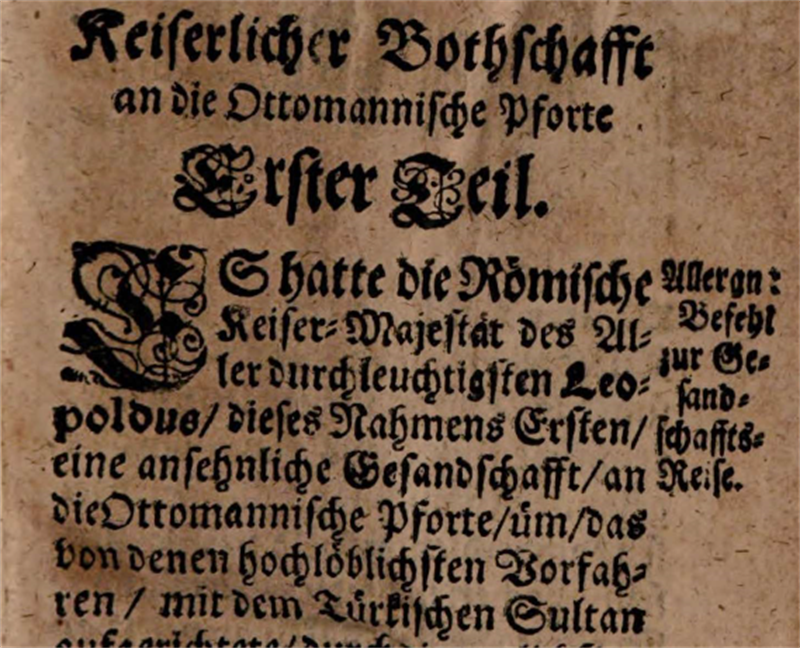 Keiserlicher Bothschafft
an die Ottomannische Pforte
Erster Teil.
ES hatte die Römische
Keiser-Majestät des Al-
ler durchleuchtigsten Leo-
poldus/ dieses Nahmens Ersten/
eine ansehnliche Gesandschafft/an
die Ottomannische Pforte/üm/das
von denen hochlöblichsten Vorfah-
ren/ mit dem Türkischen Sultan
aufgerichtete/durch
Allergn:
Befehl
zur Ge-
sand-
schaffts-
Reise.